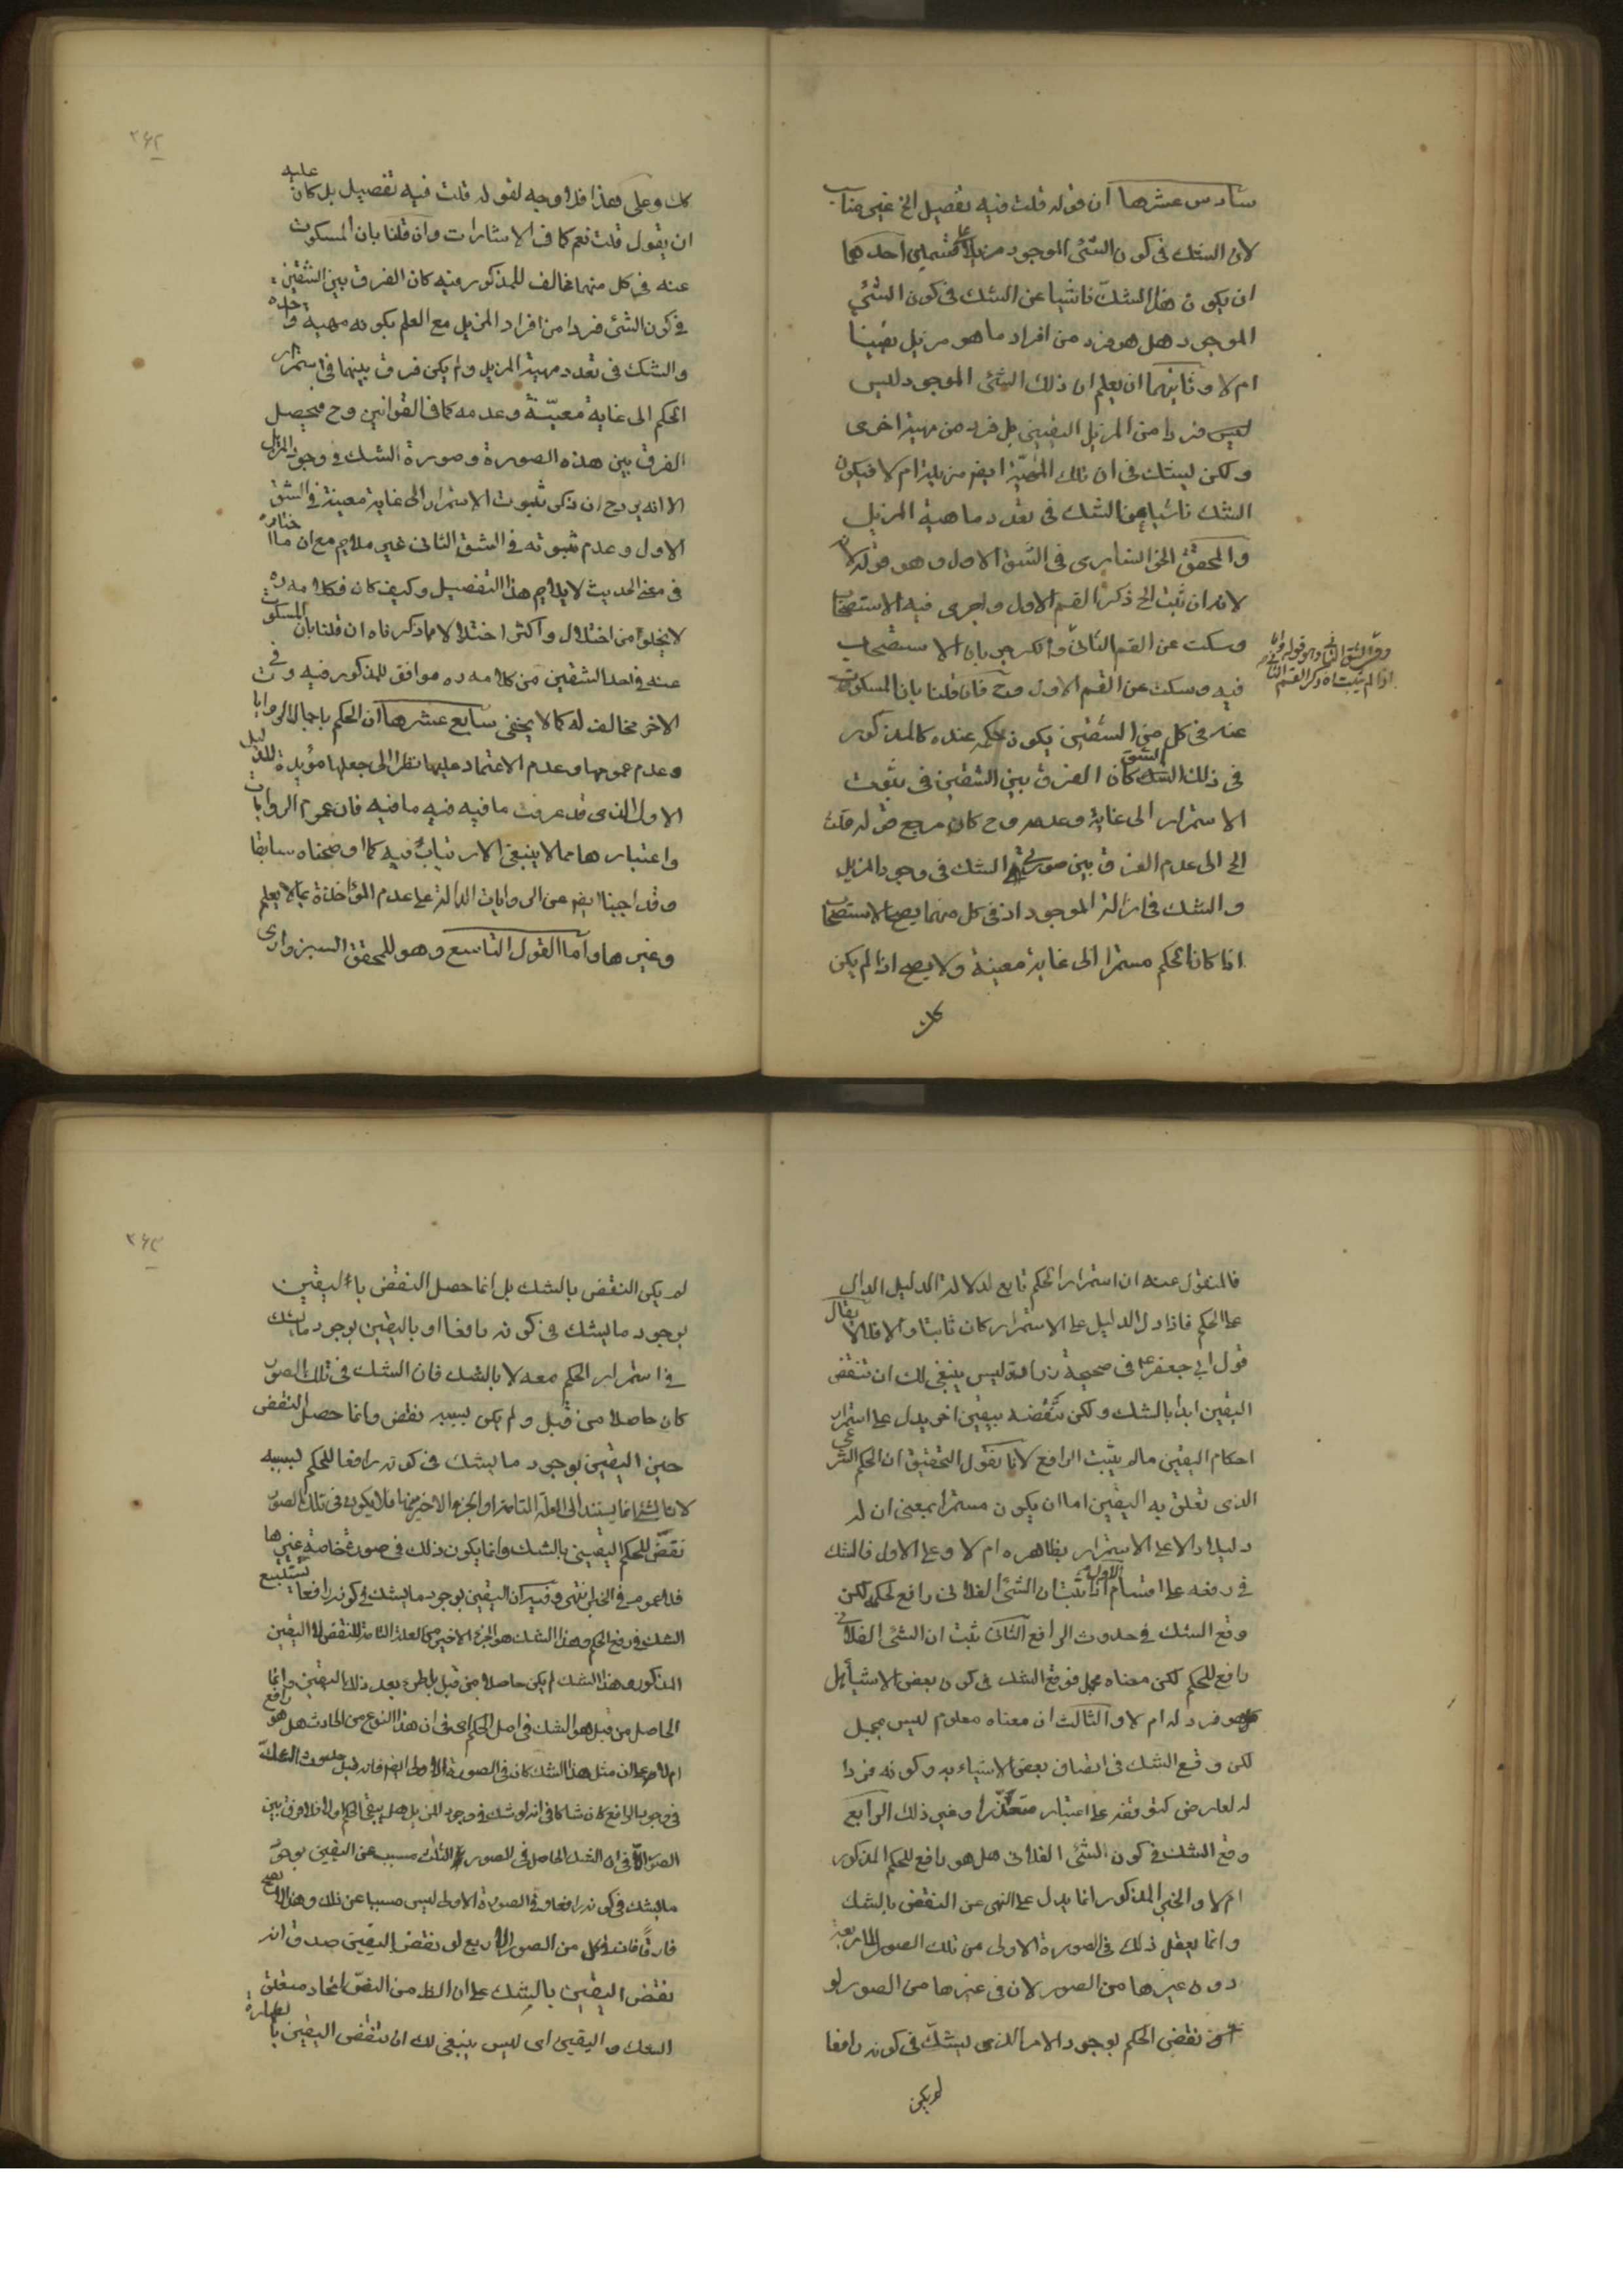 سادس عشرها ان قوله قلت فيه تفصيل الخ غير مناسب
لان الشك في كون الشئ الموجود مزيلا على قسمين احدهما
ان يكون هذا الشك ناشيا عن الشك في كون الشئ
الموجود هل هو فرد من افراد ما هو مزيل يقينا
ام لا وثانيهما ان يعلم ان ذلك الشئ الموجود ليس
ليس فردا من المزيل اليقيني بل فرد من مهية اخرى
ولكن ليشك في ان تلك المهية ايضا مزيلة ام لا فيكون
الشك ناشيا عن الشك في تعدد ماهية المزيل
والمحقق الخوانساري في الشق الاول وهو قوله لا
لانه ان ثبت الخ ذكر القسم الاول واجرى فيه الاستصحاب
وسكت عن القسم الثاني وانكر جريان الاستصحاب
وفي الشق الثاني وهو قوله واما
اذا لم يثبت اه ذكر القسم الثاني
فيه وسكت عن القسم الاول وح فان قلنا بان المسكوت
عنه في كل من الشقين يكون حكمه عنده كالمذكور
في ذلك الشق كان الفرق بين الشقين في ثبوت
الاستمرار الى غاية وعدمه وح كان مرجع قوله قلت
الخ الى عدم الفرق بين صورتي الشك في وجود المزيل
والشك في ازالة الموجود اذ في كل منهما يصح الاستصحاب
اذا كان الحكم مستمرا الى غاية معينة ولا يصح اذا لم يكن
كك
٣٦٢
كك وعلى هذا فلا وجه لقوله قلت فيه تفصيل بل كان عليه
ان يقول قلت نعم كما في الاشارات وان قلنا بان المسكوت
عنه في كل منهما مخالف للمذكور فيه كان الفرق بين الشقين
في كون الشئ فردا من افراد المزيل مع العلم بكونه مهية واحدة
والشك في تعدد مهية المزيل ولم يكن فرق بينهما في استمرار
الحكم الى غاية معينة وعدمه كما في القوانين وح فيحصل
الفرق بين هذه الصورة وصورة الشك في وجود المزيل
الا انه يرد ح ان ذكر ثبوت الاستمرار الى غاية معينة في الشق
الاول وعدم ثبوته في الشق الثاني غير ملايم مع ان ما اختاره
في معنى الحديث لا يلايم هذا التفصيل وكيف كان فكلامه ره
لا يخلو من اختلال واكثر اختلالا مما ذكرناه ان قلنا بان المسكوت
عنه في احد الشقين من كلامه ره موافق للمذكور فيه وفي
الاخر مخالف له كما لا يخفى سابع عشرها ان الحكم باجمال الروايات
وعدم عمومها وعدم الاعتماد عليها نظرا الى جعلها مؤيدة للدليل
الاول الذي قد عرفت ما فيه فيه ما فيه فان عموم الروايات
واعتبارها مما لا ينبغي الارتياب فيه كما اوضحناه سابقا
وقد اجبنا ايضا عن الروايات الدالة على عدم المؤاخذة بما لا يعلم
وغيرها واما القول التاسع وهو للمحقق السبزواري
فالمنقول عنه ان استمرار الحكم تابع لدلالة الدليل الدال
على الحكم فاذا دل الدليل على الاستمرار كان ثابتا والا فلا لا يقال
قول ابي جعفر ع في صحيحة زرارة ليس ينبغي لك ان تنقض
اليقين ابدا بالشك ولكن تنقضه بيقين اخر يدل على استمرار
احكام اليقين ما لم يثبت الرافع لانا نقول التحقيق ان الحكم الشرعي
الذي تعلق به اليقين اما ان يكون مستمرا بمعنى ان له
دليلا دالا على الاستمرار بظاهره ام لا وعلى الاول فالشك
في رفعه على اقسام الاول اذا ثبت ان الشئ الفلاني رافع لحكم لكن
وقع الشك في حدوث الرافع الثاني ثبت ان الشئ الفلاني
رافع للحكم لكن معناه مجمل فوقع الشك في كون بعض الاشياء هل
هو فرد له ام لا والثالث ان معناه معلوم ليس بمجمل
لكن وقع الشك في اتصاف بعض الاشياء به وكونه فردا
له لعارض كتوقفه على اعتبار متعذر او غير ذلك الرابع
وقع الشك في كون الشئ الفلاني هل هو رافع للحكم المذكور
ام لا والخبر المذكور انما يدل على النهي عن النقض بالشك
وانما يعقل ذلك في الصورة الاولى من تلك الصور الاربعة
دون غيرها من الصور لان في غيرها من الصور لو
نقض الحكم بوجود الامر الذي ليشك في كونه رافعا
لم يكن
٣٦٣
لم يكن النقض بالشك بل انما حصل النقض باليقين
بوجود ما يشك في كونه رافعا او باليقين بوجود ما يشك
في استمرار الحكم معه لا بالشك فان الشك في تلك الصور
كان حاصلا من قبل ولم يكن بسببه نقض وانما حصل النقض
حين اليقين بوجود ما يشك في كونه رافعا للحكم بسببه
لان الشئ انما يستند الى العلة التامة او الجزء الاخير منها فلا يكون في تلك الصور
نقض للحكم اليقيني بالشك وانما يكون ذلك في صورة خاصة غيرها
فلا عموم في الخبر انتهى وفيه ان اليقين بوجود ما يشك في كونه رافعا يستتبع
الشك في رفع الحكم وهذا الشك هو الجزء الاخير من العلة التامة للنقض لا اليقين
المذكور وهذا الشك لم يكن حاصلا من قبل بل طرء بعد ذلك اليقين وانما
الحاصل من قبل هو الشك في اصل الحكم اي في ان هذا النوع من الحادث هل هو رافع
ام لا على ان مثل هذا الشك كان في الصورة الاولى ايضا فانه قبل حدوث الشك
في وجود الرافع كان شاكا في انه لو شك في وجود المزيل هل يبقى الحكم او لا فلا فرق بين
الصور الا في ان الشك الحاصل في الصور الثلث مسبب عن اليقين بوجود
ما يشك في كونه رافعا وفي الصورة الاولى ليس مسببا عن ذلك وهذا لا يصح
فارقا فانه في كل من الصور الاربع لو نقض اليقين صدق انه
نقض اليقين بالشك على ان الظ من النص اتحاد متعلق
الشك واليقين اي ليس ينبغي لك ان تنقض اليقين بالطهارة